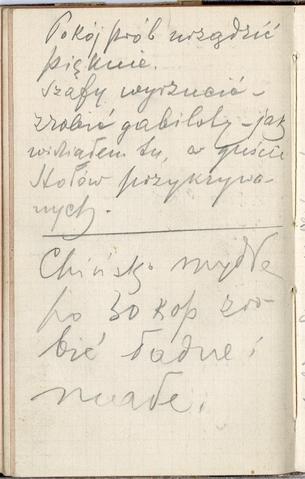 Pokój prób urządzić
pięknie.
Szafy wyrzucić -
zrobić gabiloty - jak
widziałem tu, w guście
stołów przykrywa-
nych.
Chińskie mydła
po 30 kop zro-
bić ładne i
małe.